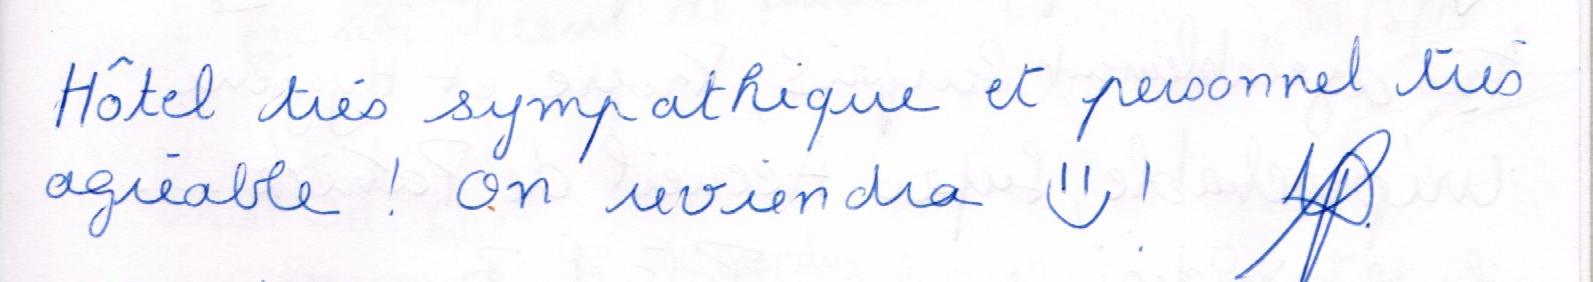 Hôtel très sympathique et personnel très
agréable ! On reviendra !